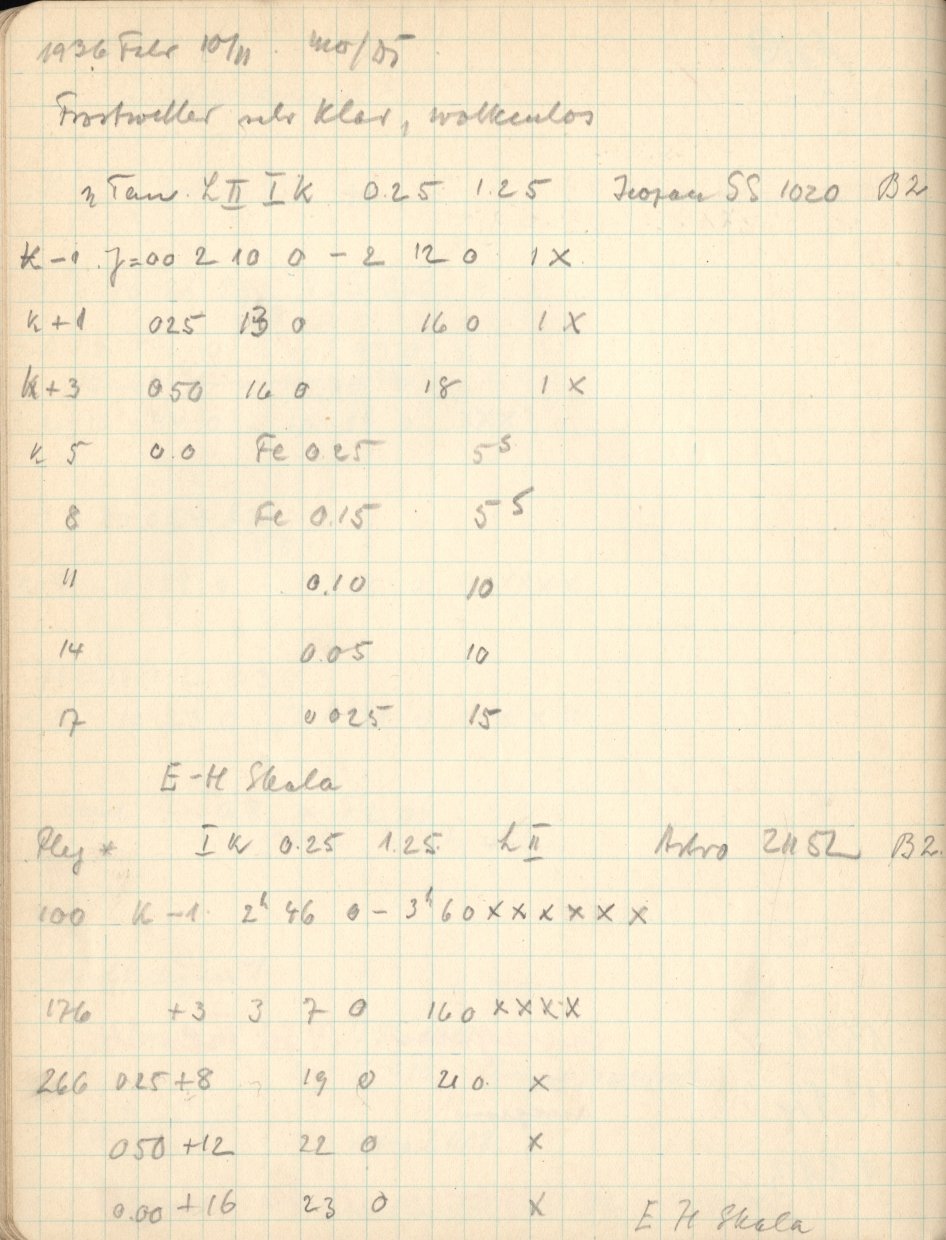 1936 Febr 10/11 Mo/Di
Frostwetter sehr klar, wolkenlos
η Tau L II I K 0.25 1.25 Isopan SS 1020 B2
K-1 J=00 2 10 0 - 2 12 0 1 x
K+1 025 13 0 16 0 1 x
K+3 050 16 0 18 1 x
K 5 0.0 Fe 0.25 5 s
8 Fe 0.15 5 s
11 0.10 10
14 0.05 10
17 0025 15
E-H Skala
Plej * I K 0.25 1.25 L II Astro 21152 B2
100 K-1 2h 46 0 - 3h 6 0 x x x x x x
176 +3 3 7 0 16 0 x x x x
266 025 +8 19 0 21 0 x
050 +12 22 0 x
0.00 +16 23 0 x
E H Skala